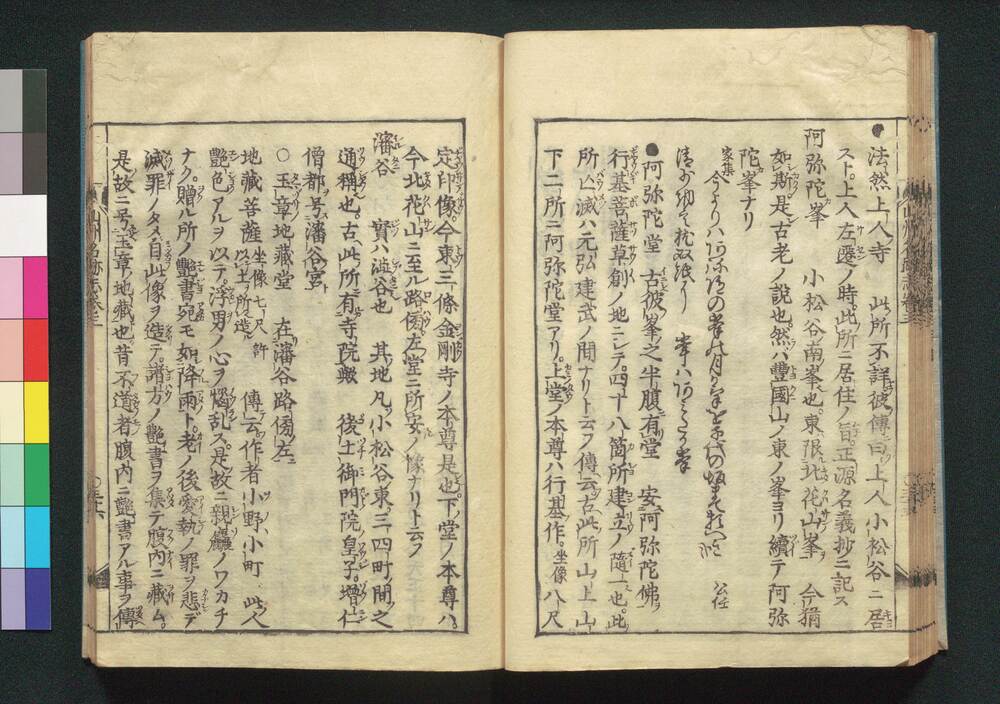 法然上人寺　此所不詳彼傳曰上人小松谷ニ居
スト上人左遷ノ時此所ニ居住ノ旨正源名義抄ニ記ス
阿弥陀峯　小松谷南峯也東限北花山峯　今猶
如斯是古老ノ說也然ハ豐國山ノ東ノ峯ヨリ續テ阿弥
陀峯ナリ
家集
公任
●阿弥陀堂　古彼峯之半腹有堂　安阿弥陀佛
行基菩薩草創ノ地ニシテ四十八箇所建立ノ隨一也此
所亡滅ハ元弘建武ノ間ナリト云フ傳云古此所山上山
下二所ニ阿弥陀堂アリ上堂ノ本尊ハ行基作坐像八尺
定印像今東三條金剛寺ノ本尊是也下堂ノ本尊ハ
今北花山ニ至ル路傍左堂ニ所安ノ像ナリト云フ
瀋谷　實ハ澁谷也　其地凡小松谷東三四町間之
通稱也古此所有寺院歟　後土御門院皇子增仁
僧都号瀋谷宮
○玉章地藏堂　在瀋谷路傍左
地藏菩薩坐像七尺許以土所造　傳云作者小野小町　此人
艶色アルヲ以テ浮男ノ心ヲ惱乱ス是故ニ親疎ノワカチ
ナク贈ル所ノ艶書宛モ如降雨ト老ノ後愛執ノ罪ヲ悲デ
滅罪ノタメ自此像ヲ造テ諸方ノ艶書ヲ集テ腹内ニ藏ム
是故ニ号玉章ノ地藏也昔不道者腹内ニ艶書アル事ヲ傳